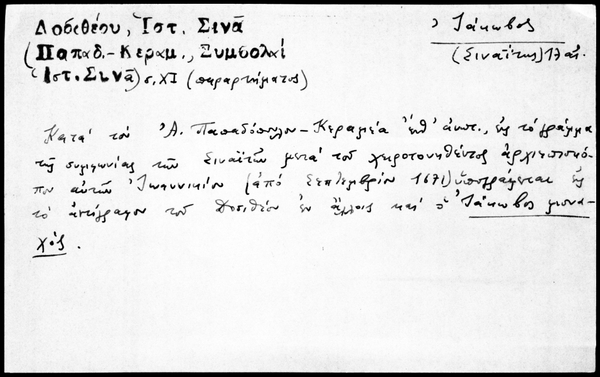 Δοσιθέου, Ἱστ. Σινᾶ
(Παπαδ.-Κεραμ., Συμβολαί
Ἱστ. Σινᾶ) σ. XI (παραρτήματος)
Ἰάκωβος
(Σιναΐτης) 17 αἰ.
Κατά τόν Ἀ. Παπαδόπουλον-Κεραμέα ἔνθ' ἀνωτ., εἰς τό γράμμα
τῆς συμφωνίας τῶν Σιναϊτῶν μετά τοῦ χειροτονηθέντος ἀρχιεπισκό-
που αὐτῶν Ἰωαννικίου (ἀπό Σεπτεμβρίου 1671) ὑπογράφεται εἰς
τό ἀντίγραφον τοῦ Δοσιθέου ἐν ἄλλοις καί ὁ Ἰάκωβος μονα-
χός.